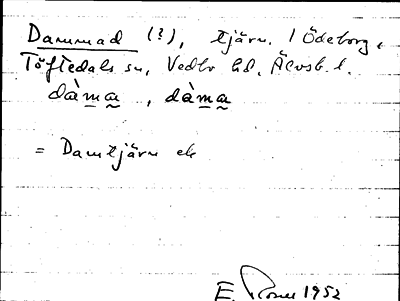 Dammad (?), tjärn. i Ödeborg,
Töftedals sn, Vedbo hd, Älvsb. l.
dàma, dàma
= Damtjärn ek
E. 1952